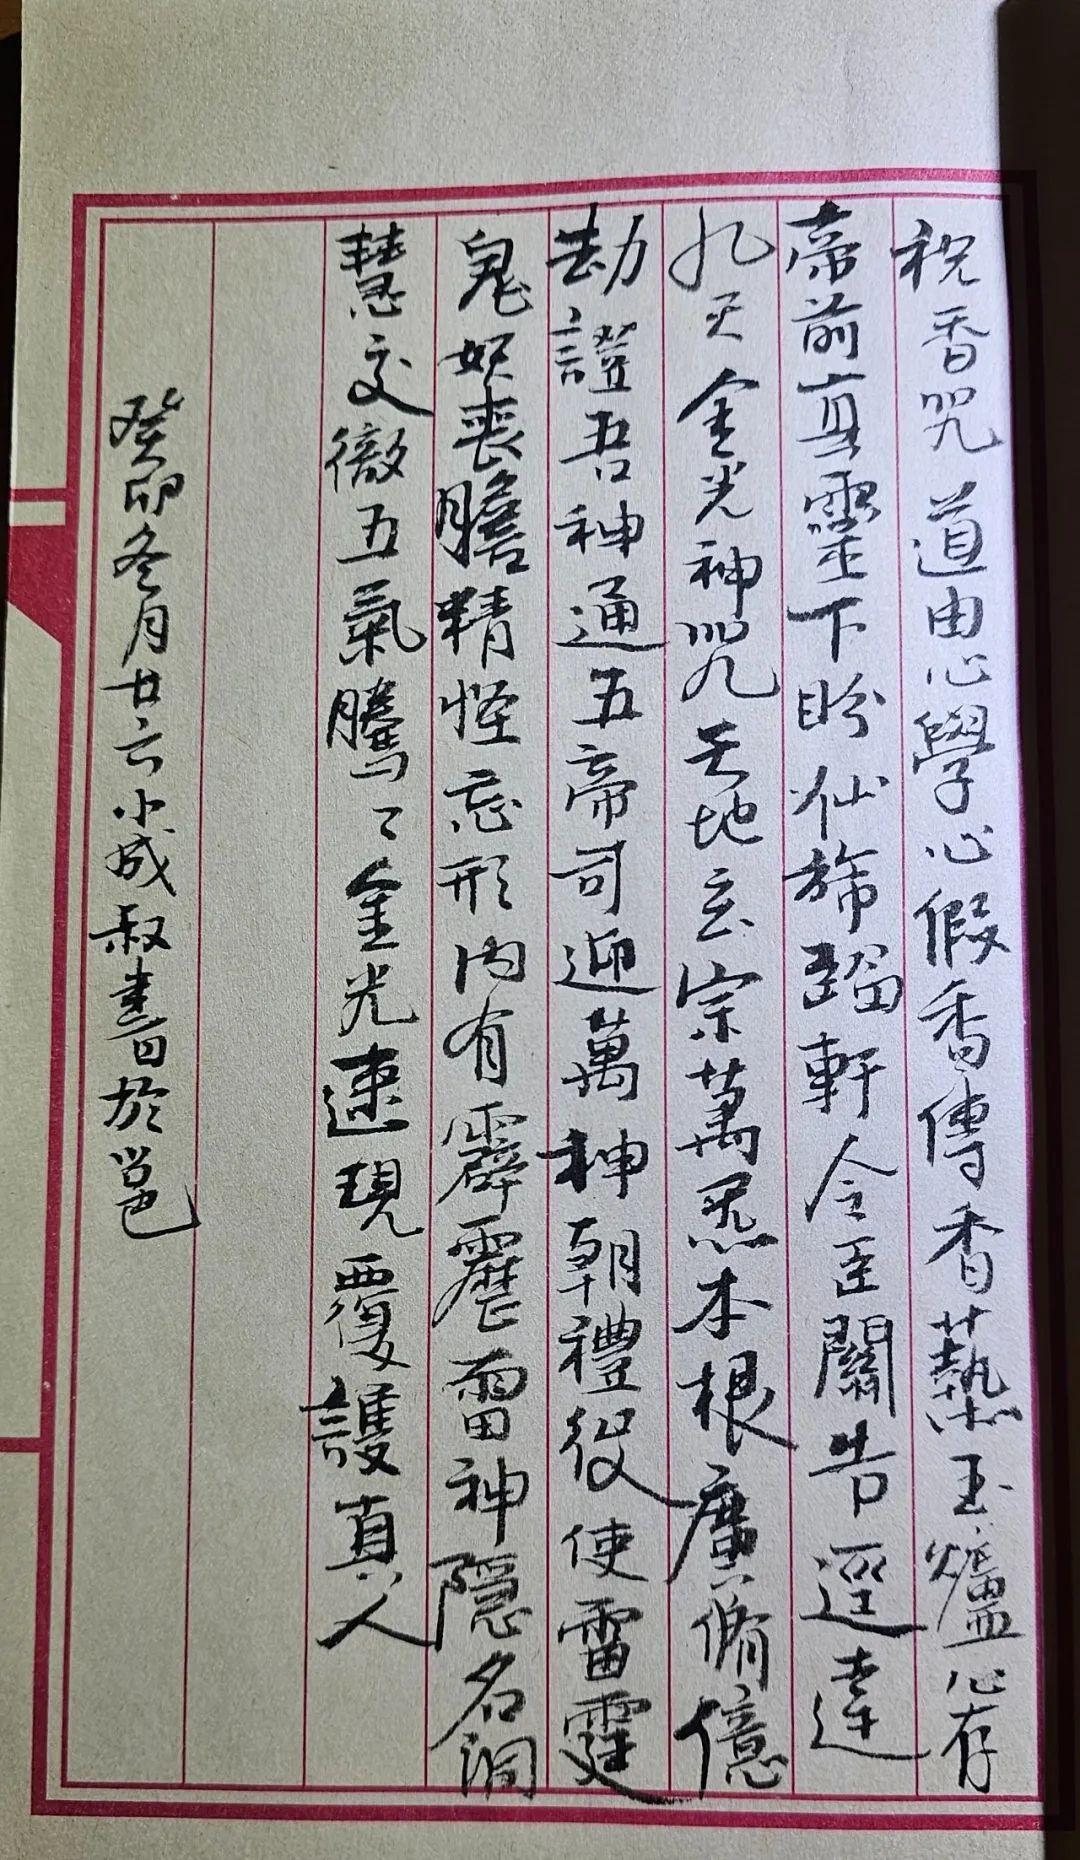 祝香咒 道由心學心假香傳香爇玉爐心存
帝前真靈下盼仙旆臨軒令臣關告逕達
九天 金光神咒 天地玄宗萬炁本根廣脩億
劫證吾神通五帝司迎萬神朝禮役使雷霆
鬼妖喪膽精怪忘形內有霹靂雷神隱名洞
慧交徹五氣騰〻金光速現覆護真人
癸卯冬月廿六小成叔書於邕